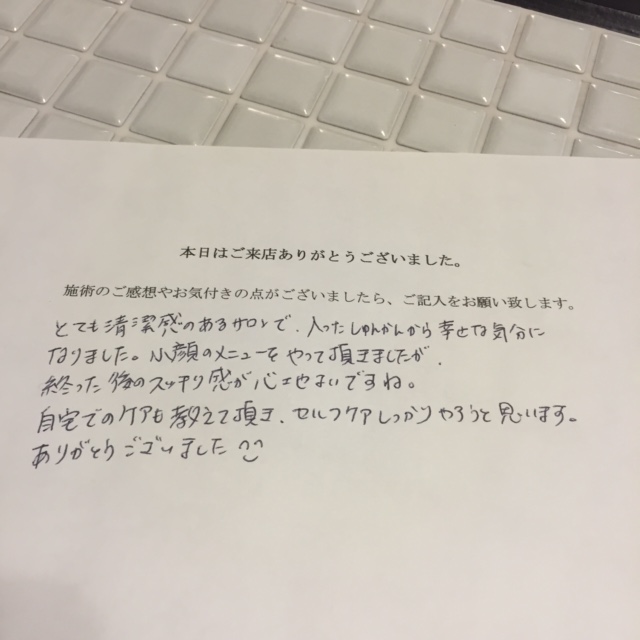 本日はご来店ありがとうございました。
施術のご感想やお気付きの点がございましたら、ご記入をお願い致します。
とても清潔感のあるサロンで、入ったしゅんかんから幸せな気分に
なりました。小顔のメニューをやって頂きましたが、
終った後のスッキリ感が心地よいですね。
自宅でのケアも教えて頂き、セルフケアしっかりやろうと思います。
ありがとうございました